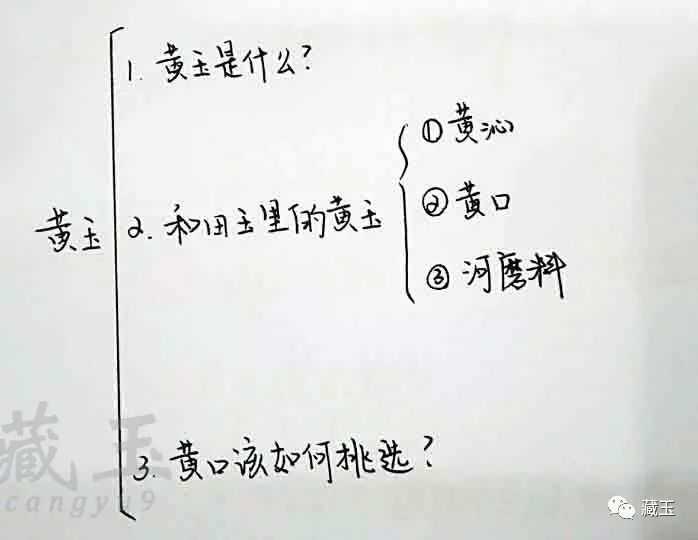 1. 黄玉是什么?
①黄沁
黄玉
2. 和田玉里的黄玉
②黄口
③河磨料
3. 黄口该如何挑选?
藏玉
cangyu9
藏玉